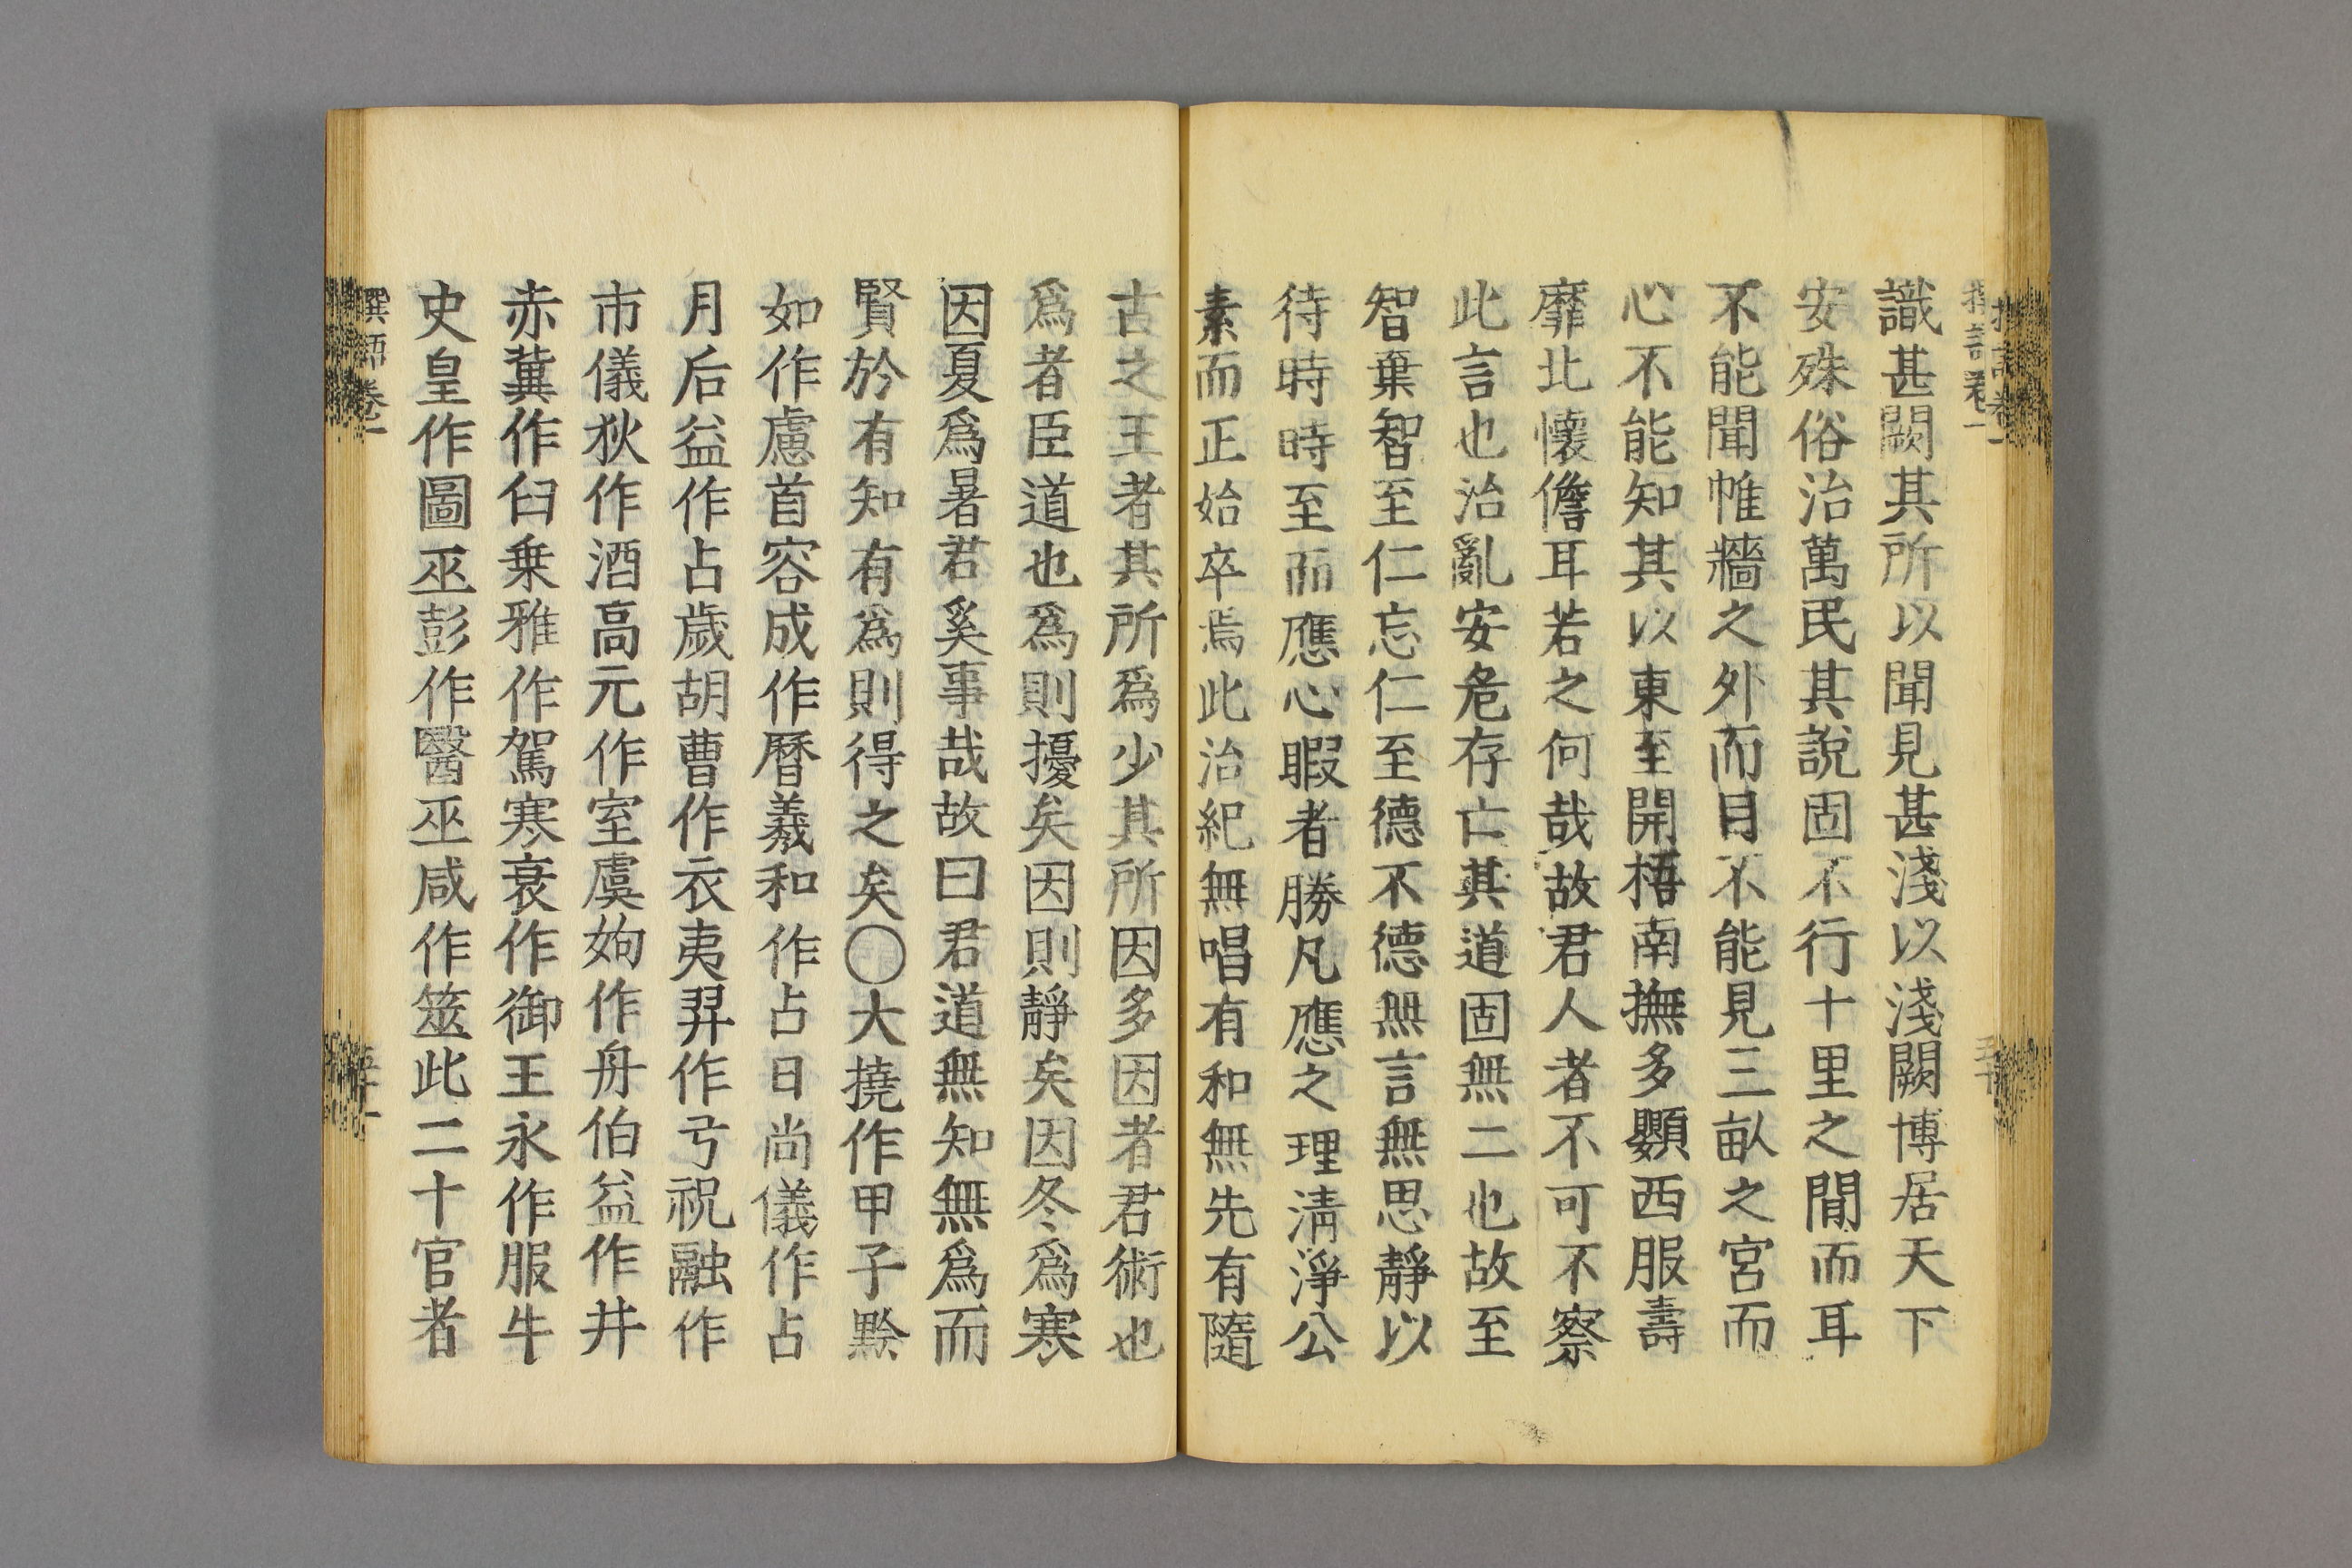 識甚闕其所以聞見甚淺以淺闕博居天下
安殊俗治萬民其說固不行十里之間而耳
不能聞帷牆之外而目不能見三畝之宮而
心不能知其以東至開梧南撫多顠西服壽
靡北懷儋耳若之何哉故君人者不可不察
此言也治亂安危存亡其道固無二也故至
智棄智至仁忘仁至德不德無言無思靜以
待時時至而應心暇者勝凡應之理淸淨公
素而正始卒焉此治紀無唱有和無先有隨
古之王者其所爲少其所因多因者君術也
爲者臣道也爲則擾矣因則靜矣因冬爲寒
因夏爲暑君奚事哉故曰君道無知無爲而
賢於有知有爲則得之矣○大撓作甲子黔
如作慮首容成作曆羲和作占日尚儀作占
月后益作占歲胡曹作衣夷羿作弓祝融作
市儀狄作酒高元作室虞姁作舟伯益作井
赤冀作臼乗雅作駕寒衰作御王永作服牛
史皇作圖巫彭作醫巫咸作筮此二十官者
卷一